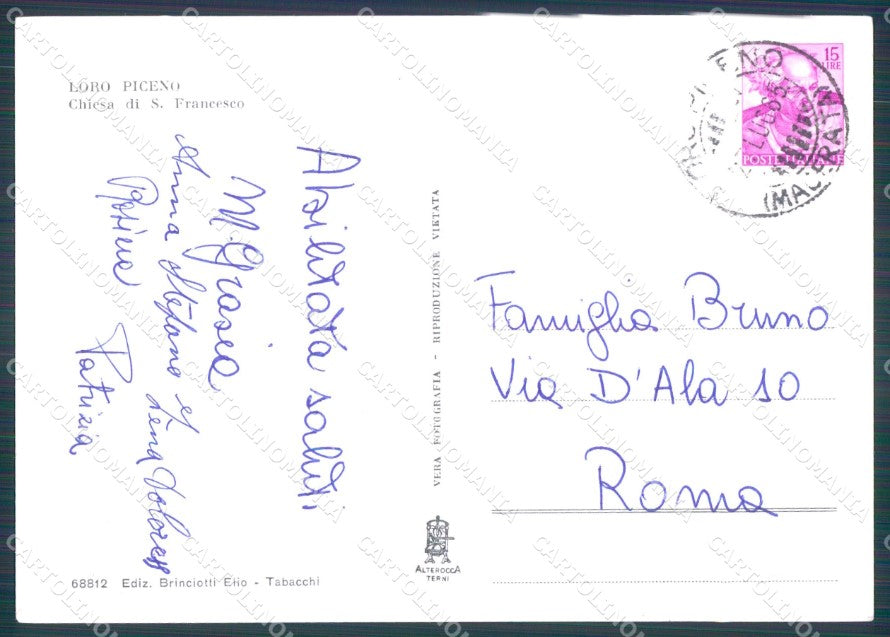 LORO PICENO
Chiesa di S. Francesco
Abilitata saluti
M. Grazia
Anna Stefano et Lena Dolores
Rosina
Patrizia
VERA FOTOGRAFIA - RIPRODUZIONE VIETATA
15
LIRE
POSTE ITALIANE
PICENO
LUG 65
(MACERATA)
Famiglia Bruno
Via D'Ala 10
Roma
ALTEROCCA
TERNI
68812 Ediz. Brinciotti Elio - Tabacchi
CARTOLINOMANIA